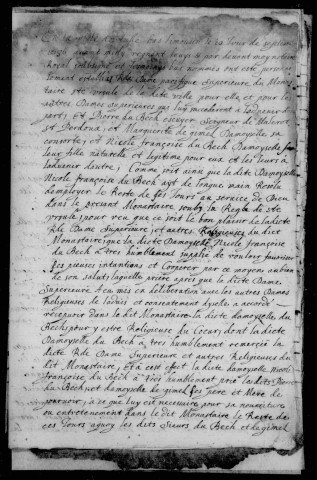 le jour de septem
avant midy
Royal et tesmoings bas nommés ont esté person
nellement establies Rde Dame Superieure du Mona
stere Ste Ursule de la dicte ville pour elle et pour les
autres Dames Superieures que luy succederont a Ladvenir d'une
part; et Pierre du Bech escuyer Seigneur de
St Perdoux, et Marguerite de gimel Damoyselle sa
consorte, et Nicole françoise du Bech Damoyselle
leur fille naturelle et legitime pour eux et les leurs à
Ladvenir dautre; Comme soit ainsin que la dicte Damoyselle
Nicole françoise du Bech ayt de longue main Resolu
demployer le Reste de ses Jours au service de Dieu
dans le present Monastaire soubz la Regle de Ste
Ursule; pour veu que ce soit le bon plaisir de ladicte
Rde Dame Superieure, et autres Religieuses du dict
Monastaire; que la dicte Damoyselle Nicole françoise
du Bech a tres humblement supplié de vouloir favoriser
ses pieuses intentions et Cooperer par ce moyen au bien
de son salut, laquelle priere après que la dicte Dame
Superieure a eu mis en deliberation avec les autres Dames
Religieuses et consentement dycelle a accordé
recepvoir dans le dit Monastaire la dicte damoyselle du
Bech pour y estre Religieuse du Cœur, dont la dicte
Damoyselle du Bech a tres humblement remercié la
dicte Rde Dame Superieure et autres Religieuses du
dit Monastaire, et a cest effet la dicte damoyselle Nicole
françoise du Bech a tres humblement prié
du Bech et damoyselle de gimel ses pere et Mere de
pourvoir, à ce que luy est necessaire pour sa nourriture
ou entretenement dans le dit Monastaire le Reste de
ses Jours les dits Sieurs du Bech et de gimel